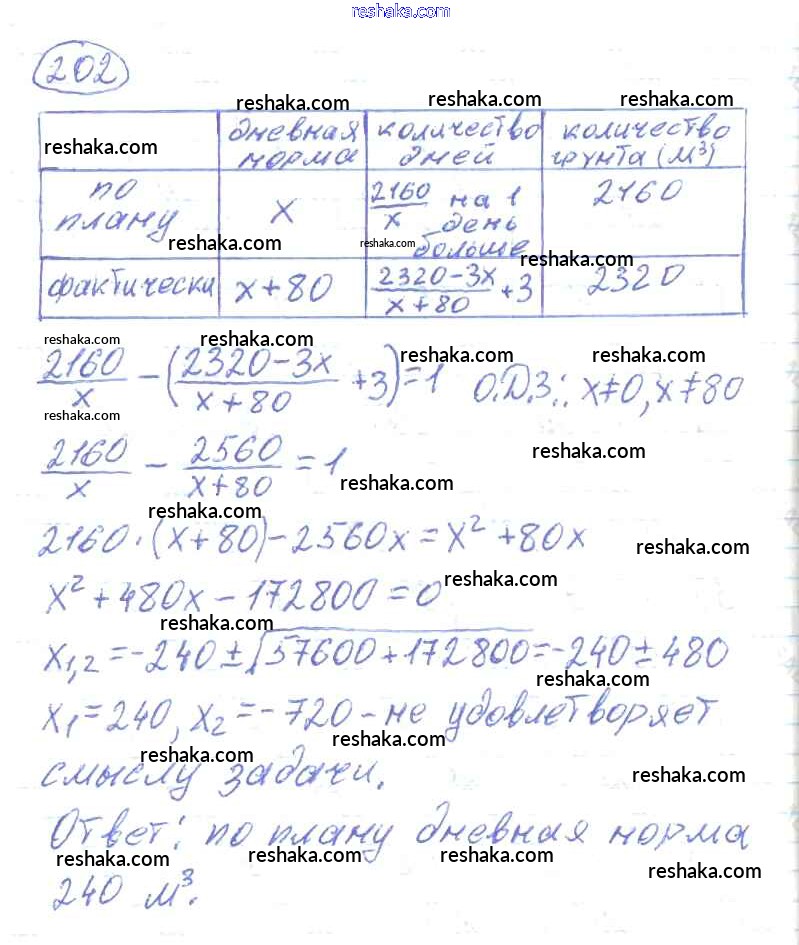 reshaka.com
202
reshaka.com reshaka.com reshaka.com
reshaka.com дневная норма количество дней количество грунта (м³)
по плану x 2160/x на 1 день больше 2160
reshaka.com reshaka.com reshaka.com
фактически x+80 (2320-3x)/(x+80) +3 2320
reshaka.com reshaka.com reshaka.com reshaka.com
2160/x - ((2320-3x)/(x+80) +3)=1 О.Д.З.: x≠0, x≠80
reshaka.com
2160/x - 2560/(x+80) = 1
reshaka.com reshaka.com
reshaka.com
2160·(x+80)-2560x=x²+80x
reshaka.com
reshaka.com
x²+480x-172800=0
reshaka.com
x₁,₂=-240±√57600+172800=-240±480
reshaka.com
x₁=240, x₂=-720-не удовлетворяет
reshaka.com reshaka.com
смыслу задачи.
reshaka.com
Ответ: по плану дневная норма
reshaka.com reshaka.com reshaka.com reshaka.com
240 м³.